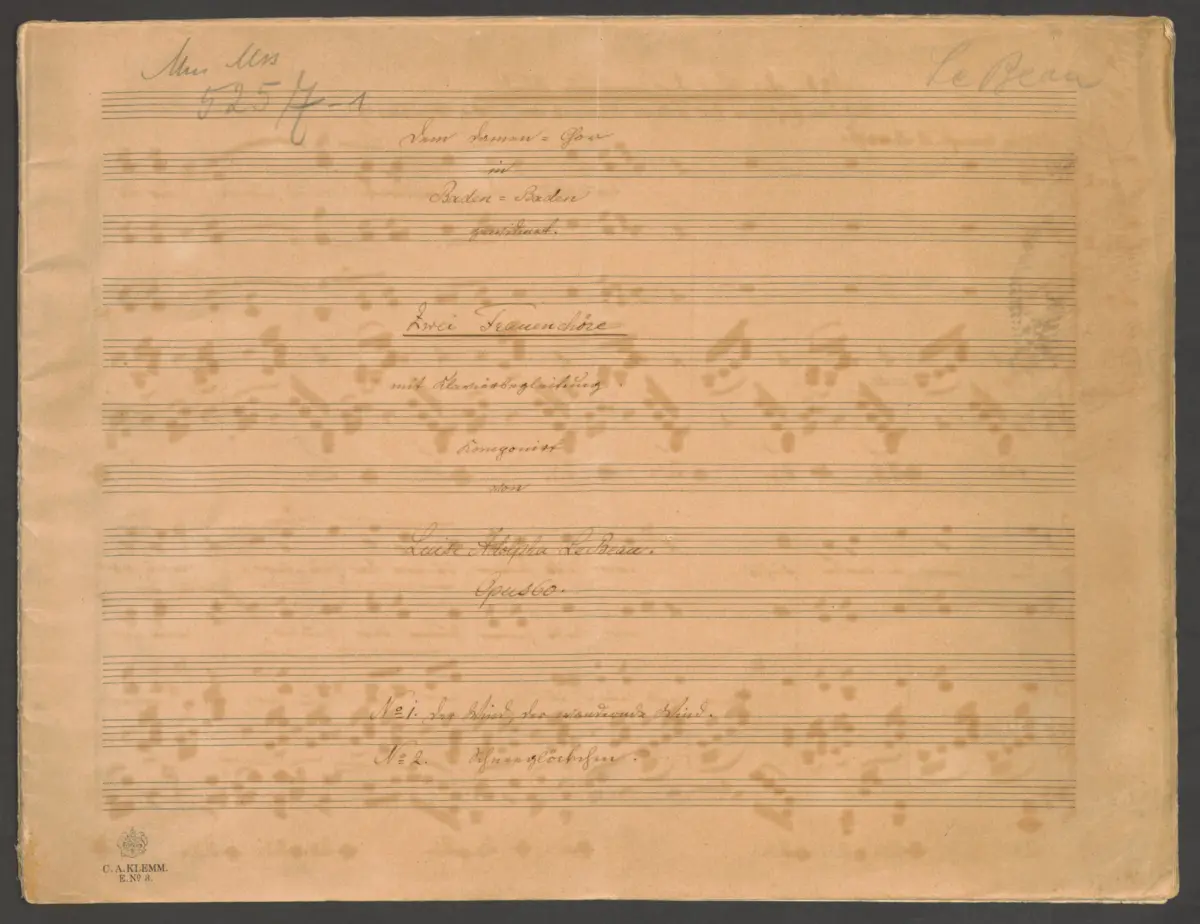 Mus Mss
5257-1
Le Beau
Dem Damen-Chor
in
Baden-Baden
gewidmet.
Zwei Frauenchöre
mit Klavierbegleitung.
Komponirt
von
Luise Adolpha Le Beau.
Opus 60.
No 1. Der Wind, der wandernde Wind.
No 2. Schneeglöckchen.
C. A. KLEMM.
E. No 8.